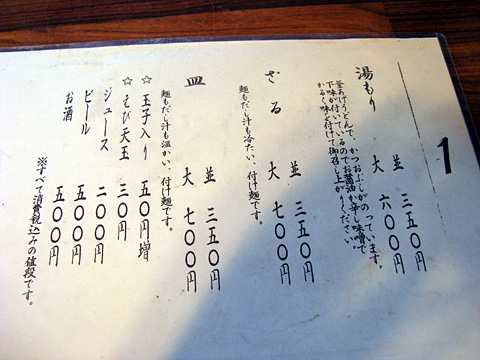 1
湯もり
並 三五〇円
大 六〇〇円
釜あげうどんで、かつおぶしがのっています。
下味が付いているのでお醤油か辛し味噌で
かるく味を付けて御召し上がりください。
ざる
並 三五〇円
大 七〇〇円
麺もだし汁も冷たい、付け麺です。
皿
並 三五〇円
大 七〇〇円
麺もだし汁も温かい、付け麺です。
☆玉子入り 五〇円増
☆えび天玉 三〇円
ジュース 二〇〇円
ビール 五〇〇円
お酒 五〇〇円
※すべて消費税込みの値段です。